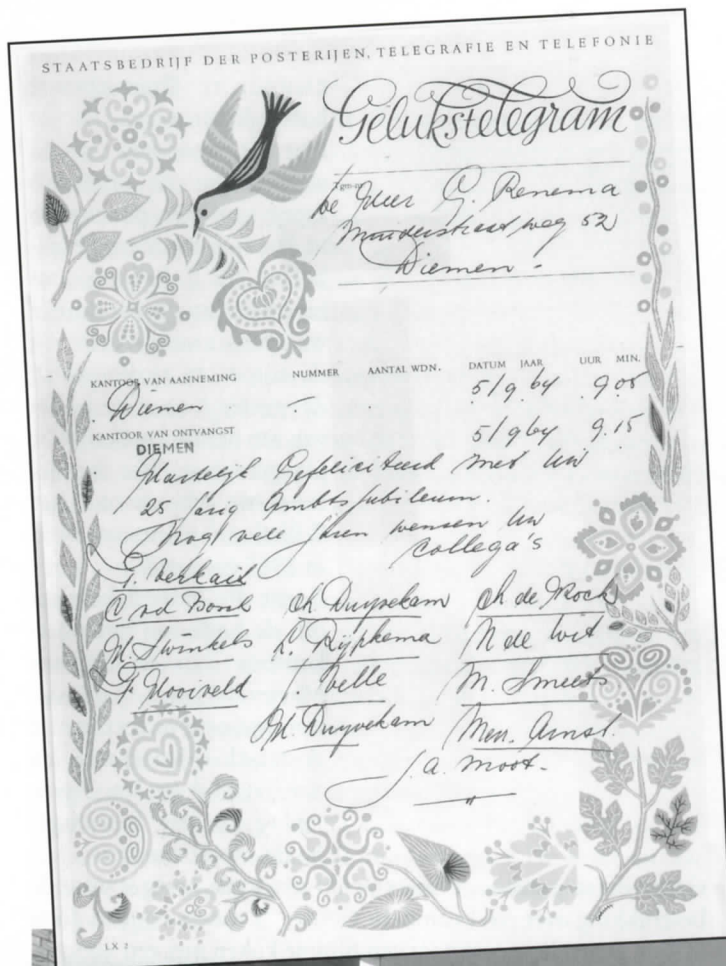 STAATSBEDRIJF DER POSTERIJEN, TELEGRAFIE EN TELEFONIE
Gelukstelegram
De Heer G. Renema
Muiderstraatweg 52
Diemen -
KANTOOR VAN AANNEMING NUMMER AANTAL WDN. DATUM JAAR UUR MIN.
Diemen - 5/9 64 9.05
KANTOOR VAN ONTVANGST 5/9 64 9.15
DIEMEN
Hartelijk Gefeliciteerd met Uw
25 jarig Ambtsjubileum.
Nog vele jaren wensen Uw
Collega's
C. vd Ch Duyvekam Ch de
M. Swinkels L. Rijpkema N de Wit
F Hooiveld J. Velle M. Smeets
M. Duyvekam Mevr. Amst.
J. A. Moot.
LX 7